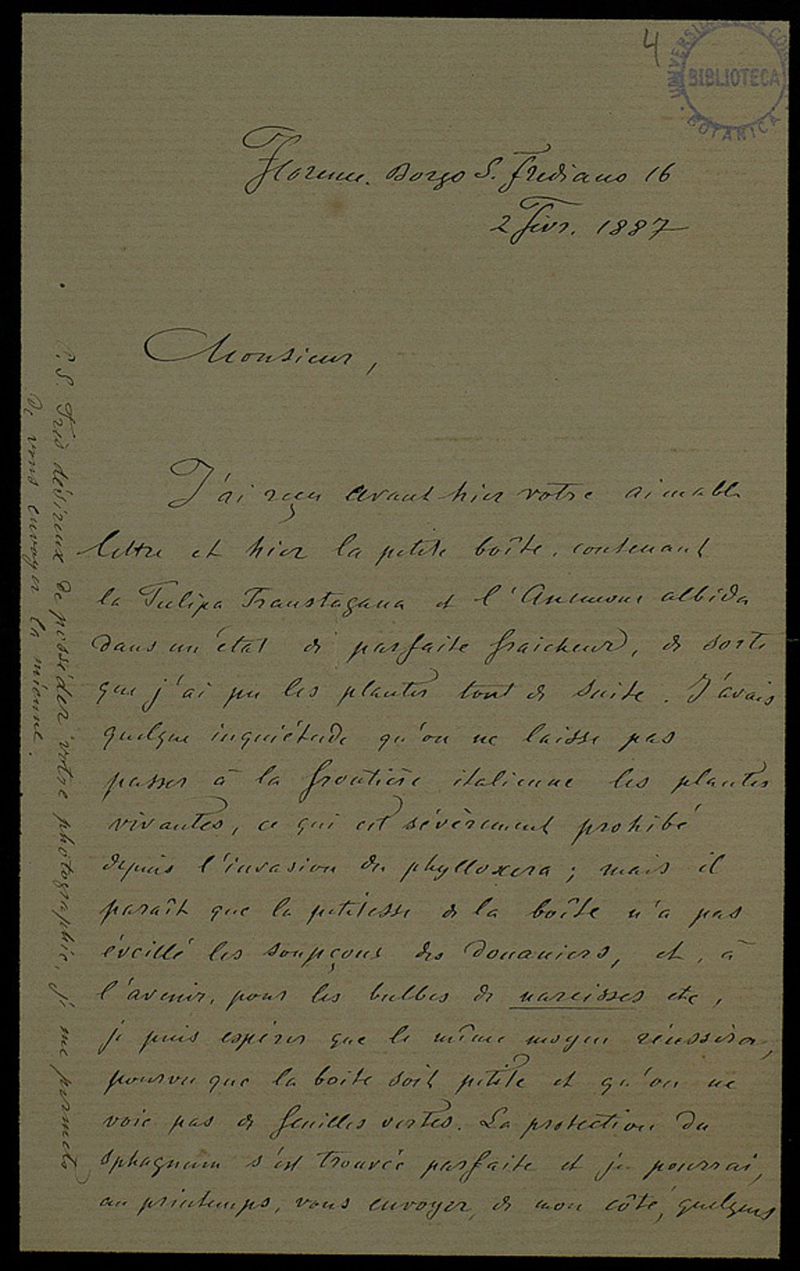 4
UNIVERSI
BIBLIOTECA
BOTANICA
Florence. Borgo S. Frediano 16
2 Févr. 1887
Monsieur,
J'ai reçu avant hier votre aimable
lettre et hier la petite boîte, contenant
la Tulipa Transtagana et l'Anemone albida
dans un état de parfaite fraicheur, de sorte
que j'ai pu les planter tout de suite. J'avais
quelque inquiétude qu'on ne laisse pas
passer à la frontière italienne les plantes
vivantes, ce qui est sévèrement prohibé
depuis l'invasion du phylloxera ; mais il
paraît que la petitesse de la boîte n'a pas
éveillé les soupçons des douaniers, et, à
l'avenir, pour les bulbes de narcisses etc,
je puis espérer que le même moyen réussira,
pourvu que la boite soit petite et qu'on ne
voie pas de feuilles vertes. La protection du
sphagnum s'est trouvée parfaite et je pourrai,
au printemps, vous envoyer, de mon côté, quelques
P. S. Très désireux de posséder votre photographie, je me permets
de vous envoyer la mienne.